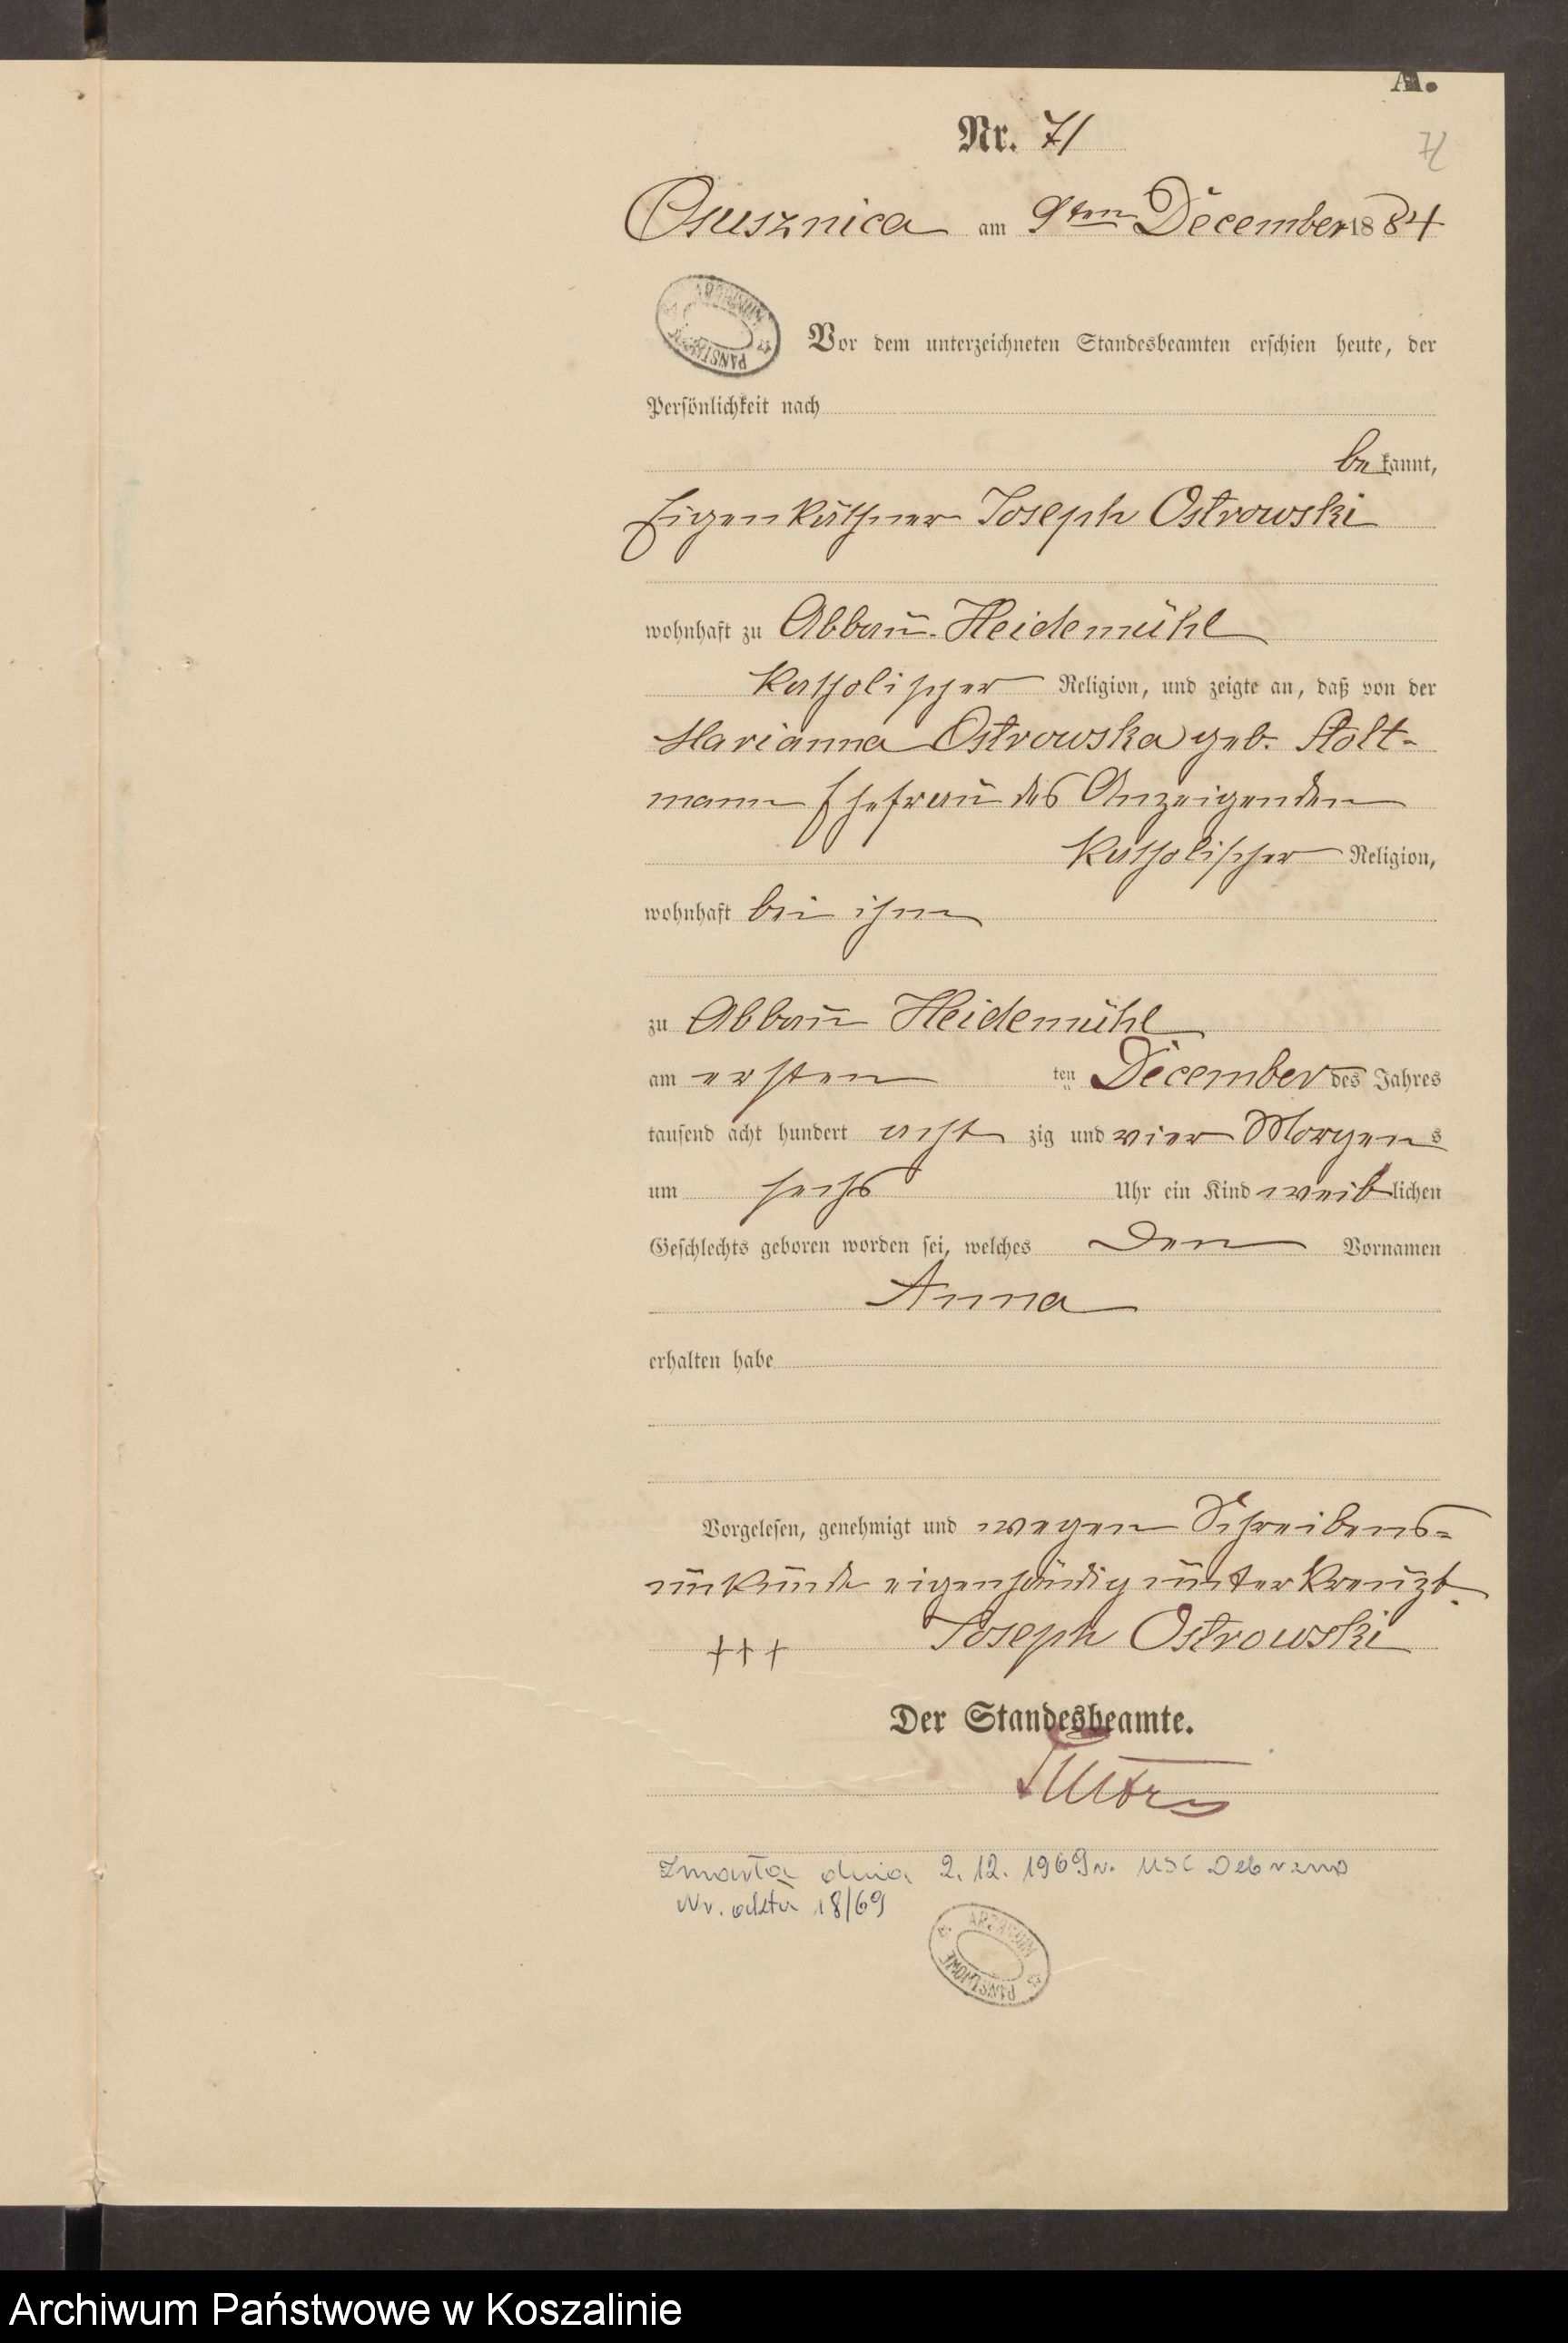 A.
Nr. 71
71
Osusznica am 9ten December 1884
ARCHIWUM PAŃSTWOWE
Vor dem unterzeichneten Standesbeamten erschien heute, der
Persönlichkeit nach
be kannt,
Eigenkäthner Joseph Ostrowski
wohnhaft zu Abbau-Heidemühl
katholischer Religion, und zeigte an, daß von der
Marianna Ostrowska geb. Stolt-
mann Ehefrau des Anzeigenden
katholischer Religion,
wohnhaft bei ihm
zu Abbau Heidemühl
am ersten ten December des Jahres
tausend acht hundert acht zig und vier Morgens
um sechs Uhr ein Kind weiblichen
Geschlechts geboren worden sei, welches den Vornamen
Anna
erhalten habe
Vorgelesen, genehmigt und wegen Schreibens-
unkunde eigenhändig unterkreuzt.
+++ Joseph Ostrowski
Der Standesbeamte.
Zmarła dnia 2.12.1969 r. USC Debrzno
Nr. aktu 18/69
ARCHIWUM PAŃSTWOWE
Archiwum Państwowe w Koszalinie